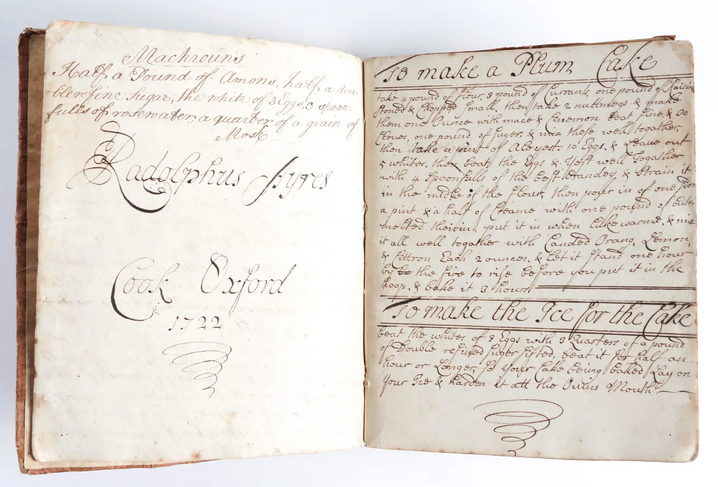 Mackrouns
Half a Pound of Amons, half a dou
ble refine Sugr, the white of 3 Eggs, 2 spoon
fulls of rosewater, a quarter of a grain of
Most
Radolphus Ayres
Cook Oxford
1722
To make a Plum Cake
take 4 pound of flour 3 pound of Currants, one pound of Raisins
stoned & Chopped small, then take 2 nuttmegs & make
them one Ounce with mace & Cinemon beat fine & 20
Cloves, one pound of Suger & mix these well together,
then take a pint of Aleyest 10 Eggs, & leave out
5 whites, then beat the Eggs & Yest well together
with 4 Spoonfulls of the best Brandey, & Strain it
in the middle of the flour, then pour in of one
a pint & a half of Creame with one pound of butter
melted therein, put it in when Lukewarme, & mix
it all well together with Canded Orang Lemon,
& Sittron Each 2 ounces, & let it Stand one hour
by the fire to rise before you put it in the
Hoop, & bake it 3 hours
To make the Ice for the Cake
beat the whites of 3 Eggs with 3 Quarters of a pound
of Double refined Suger Sifted, beat it for half an
hour or Longer, so Your Cake being baked Lay on
Your Ice & harden it att the Ovens Mouth